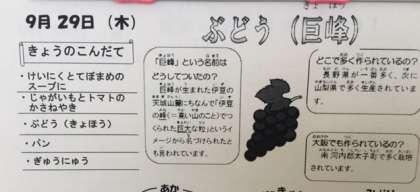 9月29日（木）
ぶどう（巨峰）
きょほう
きょうのこんだて
・けいにくとてぼまめの
スープに
・じゃがいもとトマトの
かさねやき
・ぶどう（きょほう）
・パン
・ぎゅうにゅう
「巨峰」という名前は
どうしてついたの？
巨峰が生まれた伊豆の
天城山麓にちなんで「伊豆
の峰（＝高い山のこと）でつ
くられた巨大な粒」というイ
メージから名づけられたと
も言われています。
どこで多く作られているの？
長野県が一番多く、次に
山梨県で多く生産されていま
す。
大阪でも作られているの？
南河内郡太子町で多く栽培
されています。
あか